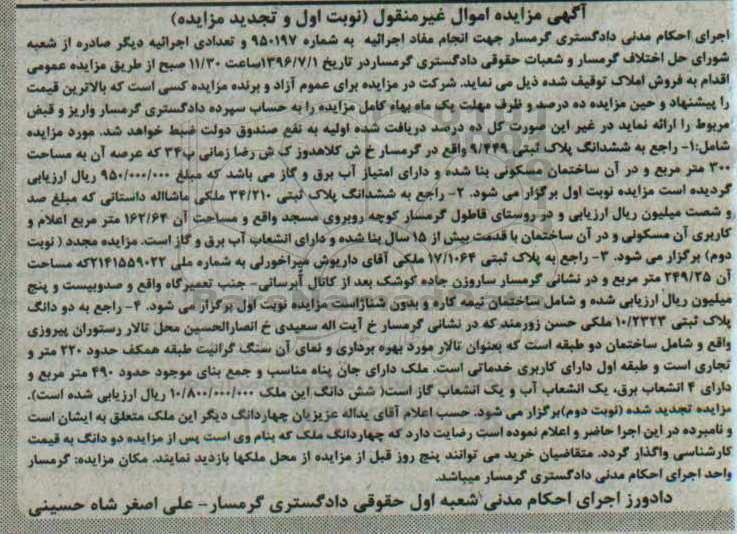 آگهی مزایده اموال غیرمنقول (نوبت اول و تجدید مزایده)
اجرای احکام مدنی دادگستری گرمسار جهت انجام مفاد اجرائیه به شماره ۹۵۰۱۹۷ و تعدادی اجرائیه دیگر صادره از شعبه
شورای حل اختلاف گرمسار و شعبات حقوقی دادگستری گرمساردر تاریخ ۱۳۹۶/۷/۱ساعت ۱۱/۳۰ صبح از طریق مزایده عمومی
اقدام به فروش املاک توقیف شده ذیل می نماید. شرکت در مزایده برای عموم آزاد و برنده مزایده کسی است که بالاترین قیمت
را پیشنهاد و حین مزایده ده درصد و ظرف مهلت یک ماه بهاء کامل مزایده را به حساب سپرده دادگستری گرمسار واریز و قبض
مربوط را ارائه نماید در غیر این صورت کل ده درصد دریافت شده اولیه به نفع صندوق دولت ضبط خواهد شد. مورد مزایده
شامل:۱- راجع به ششدانگ پلاک ثبتی ۹/۴۴۹ واقع در گرمسار خ ش کلاهدوز ک ش رضا زمانی پ۳۴ که عرصه آن به مساحت
۳۰۰ متر مربع و در آن ساختمان مسکونی بنا شده و دارای امتیاز آب برق و گاز می باشد که مبلغ ۹۵۰/۰۰۰/۰۰۰ ریال ارزیابی
گردیده است مزایده نوبت اول برگزار می شود. ۲- راجع به ششدانگ پلاک ثبتی ۳۴/۲۱۰ ملکی ماشااله داستانی که مبلغ صد
و شصت میلیون ریال ارزیابی و در روستای قاطول گرمسار کوچه روبروی مسجد واقع و مساحت آن ۱۶۲/۶۴ متر مربع اعلام و
کاربری آن مسکونی و در آن ساختمان با قدمت بیش از ۱۵ سال بنا شده و دارای انشعاب آب برق و گاز است. مزایده مجدد ( نوبت
دوم) برگزار می شود. ۳- راجع به پلاک ثبتی ۱۷/۱۰۶۴ ملکی آقای داریوش میراخورلی به شماره ملی ۲۱۴۱۵۵۹۰۲۲که مساحت
آن ۲۴۹/۲۵ متر مربع و در نشانی گرمسار ساروزن جاده کوشک بعد از کانال آبرسانی- جنب تعمیرگاه واقع و صدوبیست و پنج
میلیون ریال ارزیابی شده و شامل ساختمان نیمه کاره و بدون شناژاست مزایده نوبت اول برگزار می شود. ۴- راجع به دو دانگ
پلاک ثبتی ۱۰/۲۳۲۳ ملکی حسن زورمند که در نشانی گرمسار خ آیت اله سعیدی خ انصارالحسین محل تالار رستوران پیروزی
واقع و شامل ساختمان دو طبقه است که بعنوان تالار مورد بهره برداری و نمای آن سنگ گرانیت طبقه همکف حدود ۲۲۰ متر و
تجاری است و طبقه اول دارای کاربری خدماتی است. ملک دارای جان پناه مناسب و جمع بنای موجود حدود ۴۹۰ متر مربع و
دارای ۴ انشعاب برق، یک انشعاب آب و یک انشعاب گاز است( شش دانگ این ملک ۱۰/۸۰۰/۰۰۰/۰۰۰ ریال ارزیابی شده است).
مزایده تجدید شده (نوبت دوم)برگزار می شود. حسب اعلام آقای یداله عزیزیان چهاردانگ دیگر این ملک متعلق به ایشان است
و نامبرده در این اجرا حاضر و اعلام نموده است رضایت دارد که چهاردانگ ملک که بنام وی است پس از مزایده دو دانگ به قیمت
کارشناسی واگذار گردد. متقاضیان خرید می توانند پنج روز قبل از مزایده از محل ملکها بازدید نمایند. مکان مزایده: گرمسار
واحد اجرای احکام مدنی دادگستری گرمسار میباشد.
دادورز اجرای احکام مدنی شعبه اول حقوقی دادگستری گرمسار- علی اصغر شاه حسینی